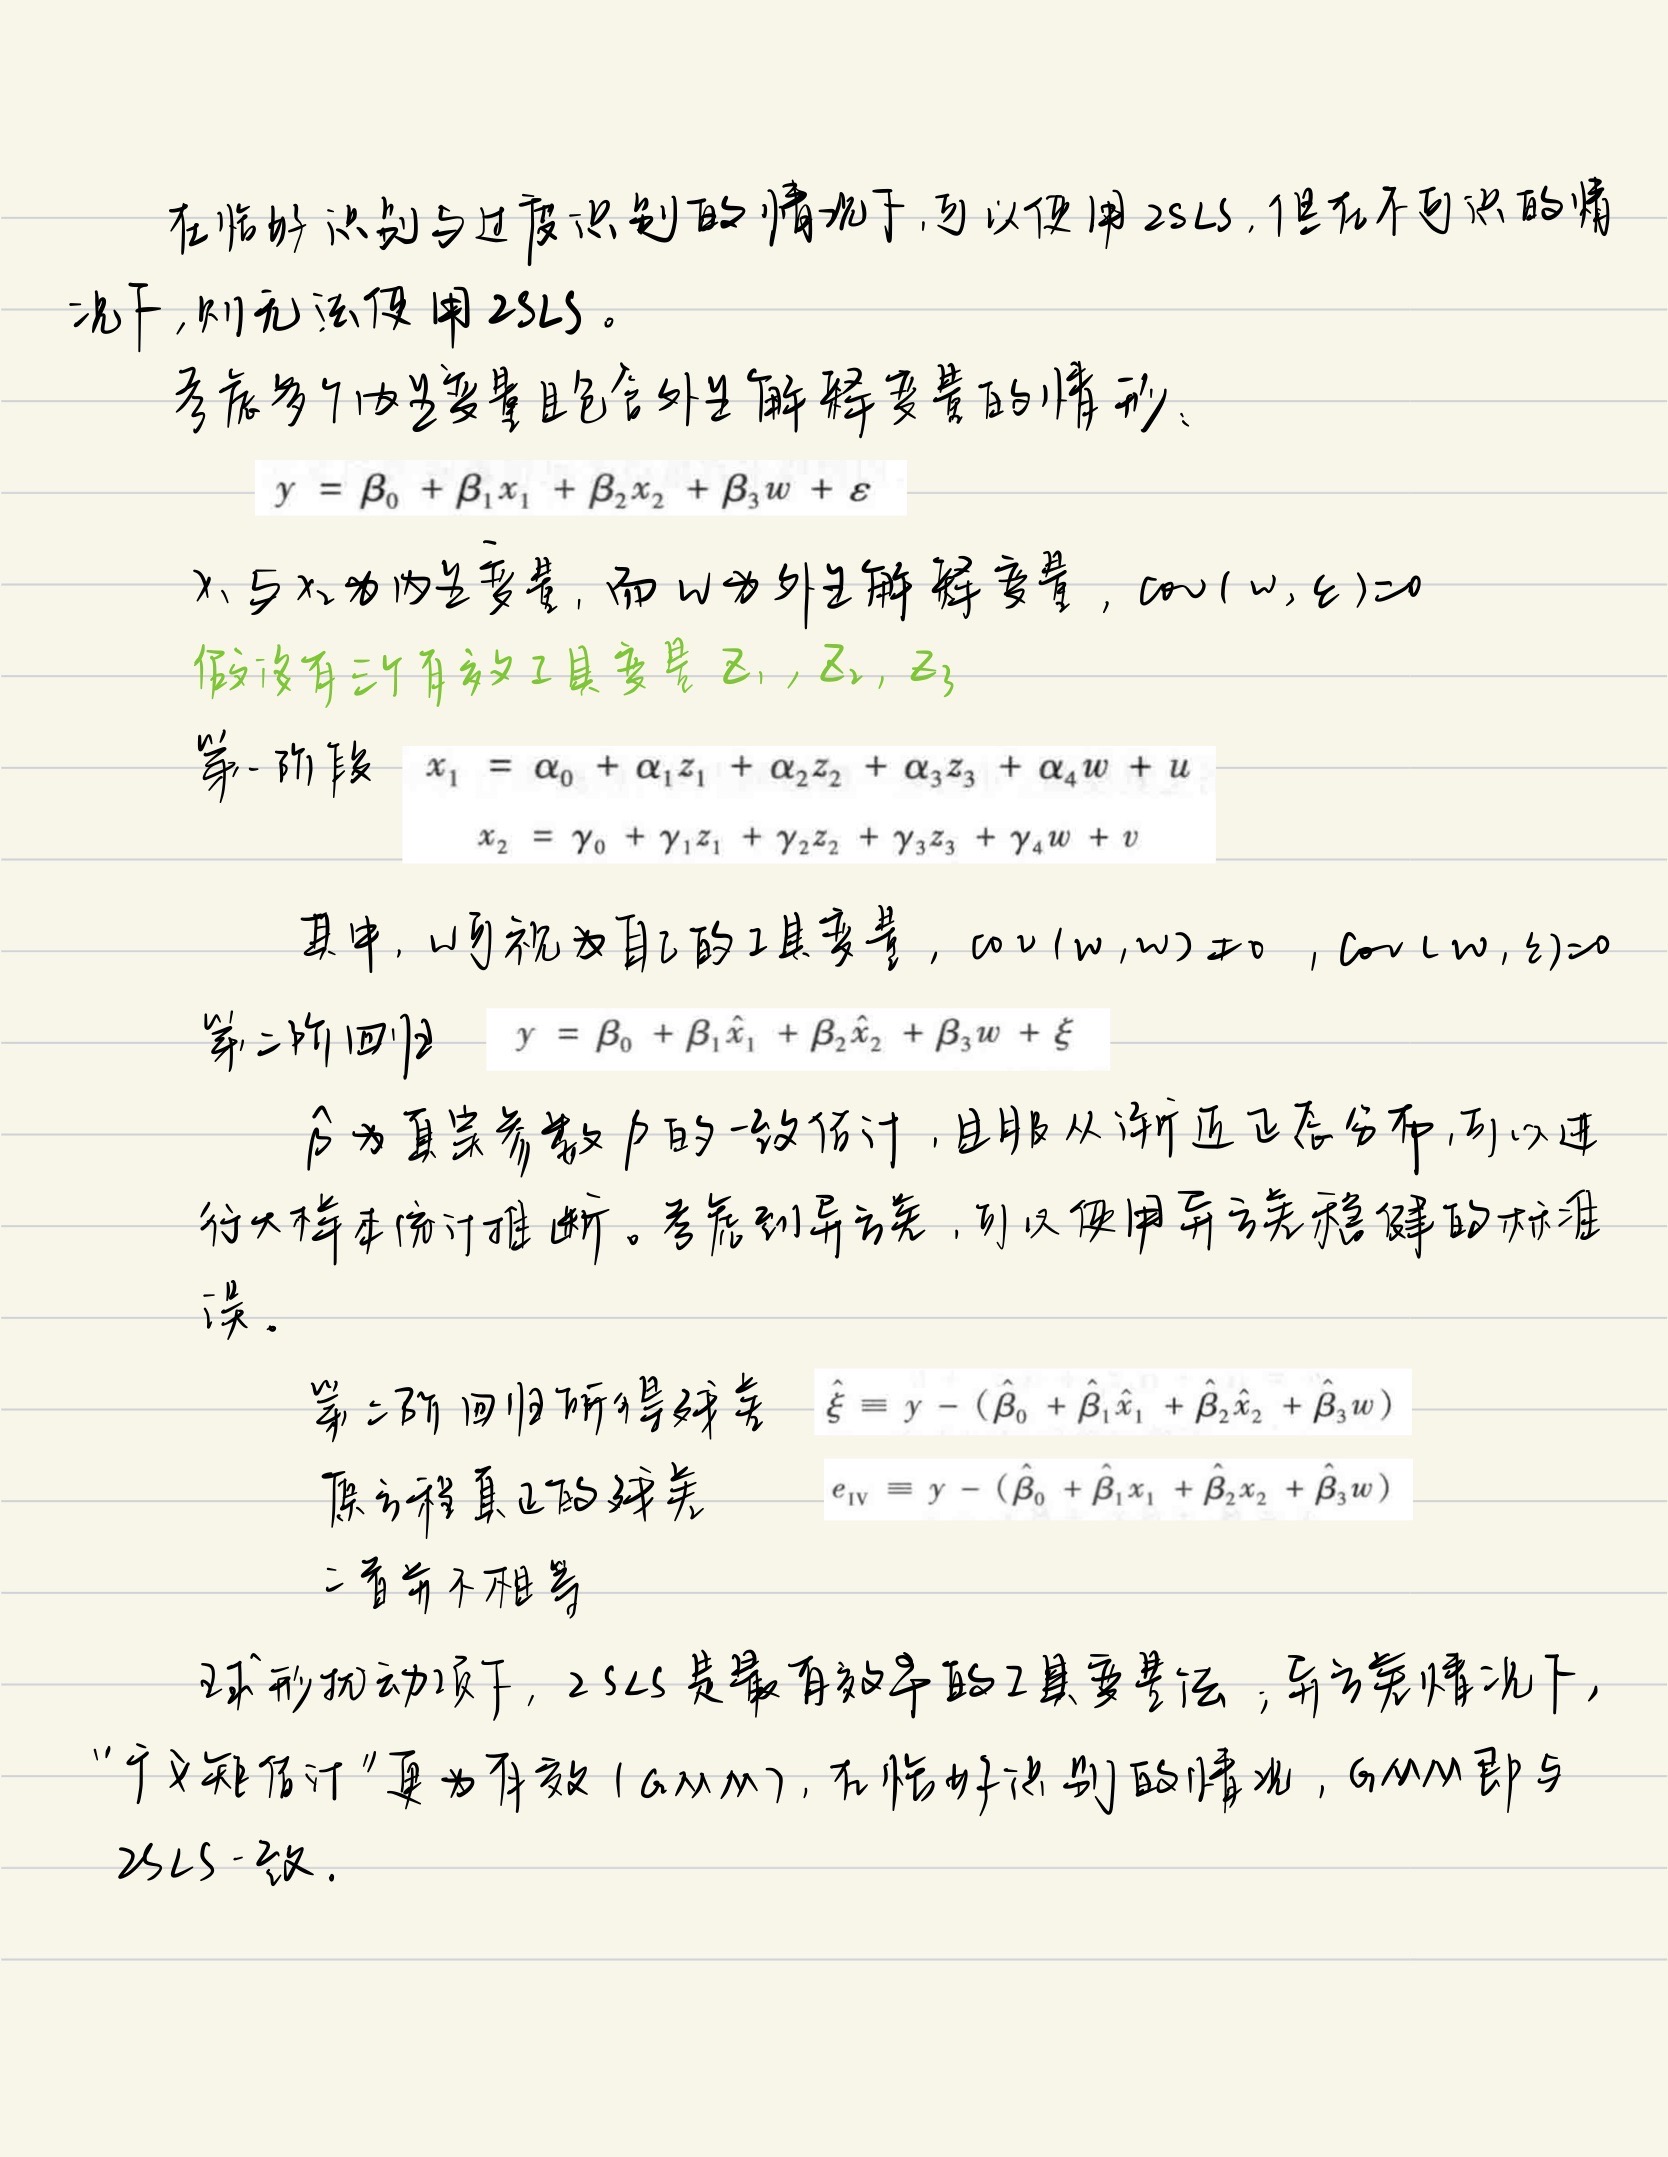 在恰好识别与过度识别的情况下,可以使用2SLS,但在不可识的情
况下,则无法使用2SLS。
考虑多个内生变量且包含外生解释变量的情形:
y = β₀ + β₁x₁ + β₂x₂ + β₃w + ε
x₁与x₂为内生变量,而w为外生解释变量,cov(w,ε)=0
假设有三个有效工具变量 Z₁, Z₂, Z₃
第一阶段 x₁ = α₀ + α₁z₁ + α₂z₂ + α₃z₃ + α₄w + u
x₂ = γ₀ + γ₁z₁ + γ₂z₂ + γ₃z₃ + γ₄w + v
其中,w可视为自己的工具变量,cov(w,w)≠0,cov(w,ε)=0
第二阶回归 y = β₀ + β₁x̂₁ + β₂x̂₂ + β₃w + ξ
β̂为真实参数β的一致估计,且服从渐近正态分布,可以进
行大样本统计推断。考虑到异方差,可以使用异方差稳健的标准
误.
第二阶回归所得残差 ξ̂ ≡ y − (β̂₀ + β̂₁x̂₁ + β̂₂x̂₂ + β̂₃w)
原方程真正的残差 e_IV ≡ y − (β̂₀ + β̂₁x₁ + β̂₂x₂ + β̂₃w)
二者并不相等
球形扰动项下,2SLS是最有效率的工具变量法;异方差情况下,
"广义矩估计"更为有效(GMM),在恰好识别的情况,GMM即与
2SLS一致.